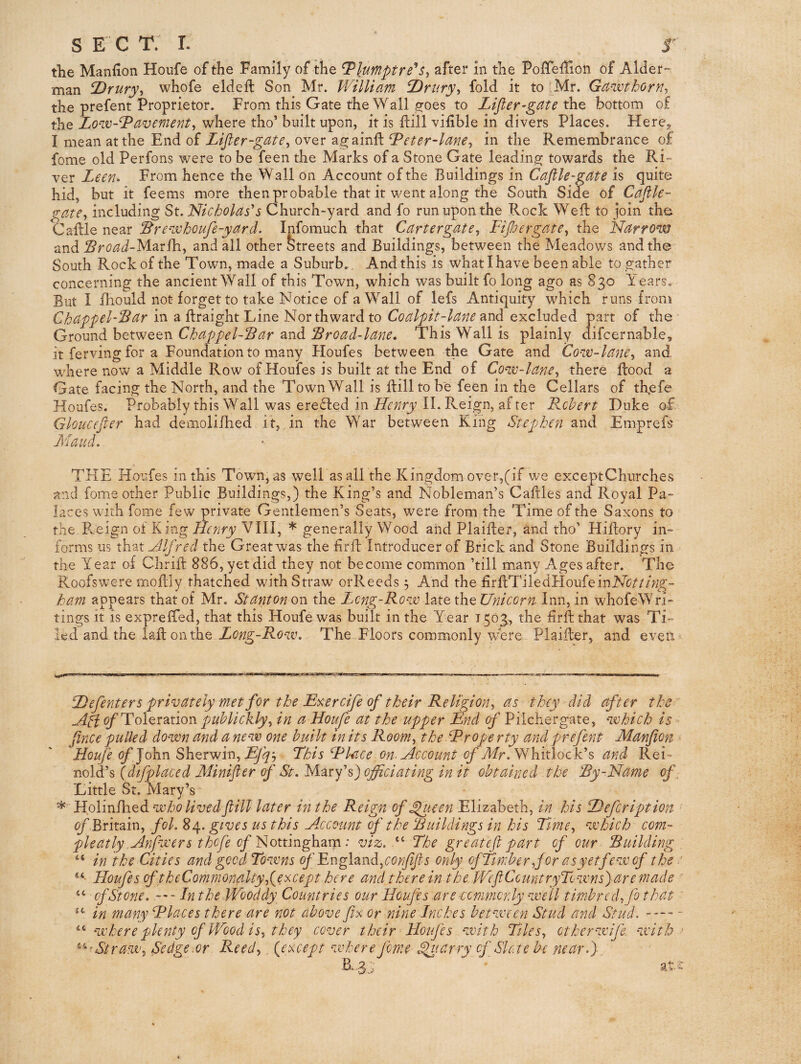 SECT. I. 5
the Manſion Houſe of the Family of the Plumptre's, after in the Poſſeſſion of Alder-
man Drury, whoſe eldeſt Son Mr. William Drury, ſold it to Mr. Gawthorn,
the preſent Proprietor. From this Gate the Wall goes to Liſter-gate the bottom of
the Low-Pavement, where tho' built upon, it is ſtill viſible in divers Places. Here,
I mean at the End of Liſter-gate, over againſt Peter-lane, in the Remembrance of
ſome old Perſons were to be ſeen the Marks of a Stone Gate leading towards the Ri-
ver Leen. From hence the Wall on Account of the Buildings in Caſtle-gate is quite
hid, but it ſeems more then probable that it went along the South Side of Caſtle-
gate, including St. Nicholas's Church-yard and ſo run upon the Rock Weſt to join the
Caſtle near Brewhouſe-yard. Inſomuch that Cartergate, Fiſhergate, the Narrow
and Broad-Marſh, and all other Streets and Buildings, between the Meadows and the
South Rock of the Town, made a Suburb. And this is what I have been able to gather
concerning the ancient Wall of this Town, which was built ſo long ago as 830 Years.
But I ſhould not forget to take Notice of a Wall of leſs Antiquity which runs from
Chappel-Bar in a ſtraight Line Northward to Coalpit-lane and excluded part of the
Ground between Chappel-Bar and Broad-lane. This Wall is plainly diſcernable,
it ſerving for a Foundation to many Houſes between the Gate and Cow-lane, and
where now a Middle Row of Houſes is built at the End of Cow-lane, there ſtood a
Gate facing the North, and the Town Wall is ſtill to be ſeen in the Cellars of theſe
Houſes. Probably this Wall was erected in Henry II. Reign, after Robert Duke of
Glouceſter had demoliſhed it, in the War between King Stephen and Empreſs
Maud.
THE Houſes in this Town, as well as all the Kingdom over, (if we except Churches
and ſome other Public Buildings,) the King's and Nobleman's Caſtles and Royal Pa-
laces with ſome few private Gentlemen's Seats, were from the Time of the Saxons to
the Reign of King Henry VIII, * generally Wood and Plaiſter, and tho' Hiſtory in-
forms us that Alfred the Great was the firſt Introducer of Brick and Stone Buildings in
the Year of Chriſt 886, yet did they not become common 'till many Ages after. The
Roofs were moſtly thatched with Straw or Reeds; And the firſt Tiled Houſe in Notting-
ham appears that of Mr. Stanton on the Long-Row late the Unicorn Inn, in whoſe Wri-
tings it is expreſſed, that this Houſe was built in the Year 1503, the firſt that was Ti-
led and the laſt on the Long-Row. The Floors commonly were Plaiſter, and even
Deſenters privately met for the Exerciſe of their Religion, as they did after the
Act of Toleration publickly, in a Houſe at the upper End of Pilchergate, which is
ſince pulled down and a new one built in its Room, the Property and preſent Manſion
Houſe of John Sherwin, Eſq; This Place on Account of Mr. Whitlock's and Rei-
nold's (diſplaced Miniſter of St. Mary's) officiating in it obtained the By-Name of
Little St. Mary's
* Holinſhed who lived ſtill later in the Reign of Queen Elizabeth, in his Deſcription
of Britain, fol. 84. gives us this Account of the Buildings in his Time, which com-
pleatly Anſwers thoſe of Nottingham: viz. “ The greateſt part of our Building
“ in the Cities and good Towns of England, conſiſts only of Timber, for as yet few of the
“ Houſes of the Commonalty, (except here and there in the Weſt Country Towns) are made
“ of Stone. --- In the Wooddy Countries our Houſes are commonly well timbred, ſo that
“ in many Places there are not above ſix or nine Inches between Stud and Stud. -----
“ where plenty of Wood is, they cover their Houſes with Tiles, otherwiſe with
“ Straw, Sedge or Reed, (except where ſome Quarry of Slate be near.)
B. 3. at